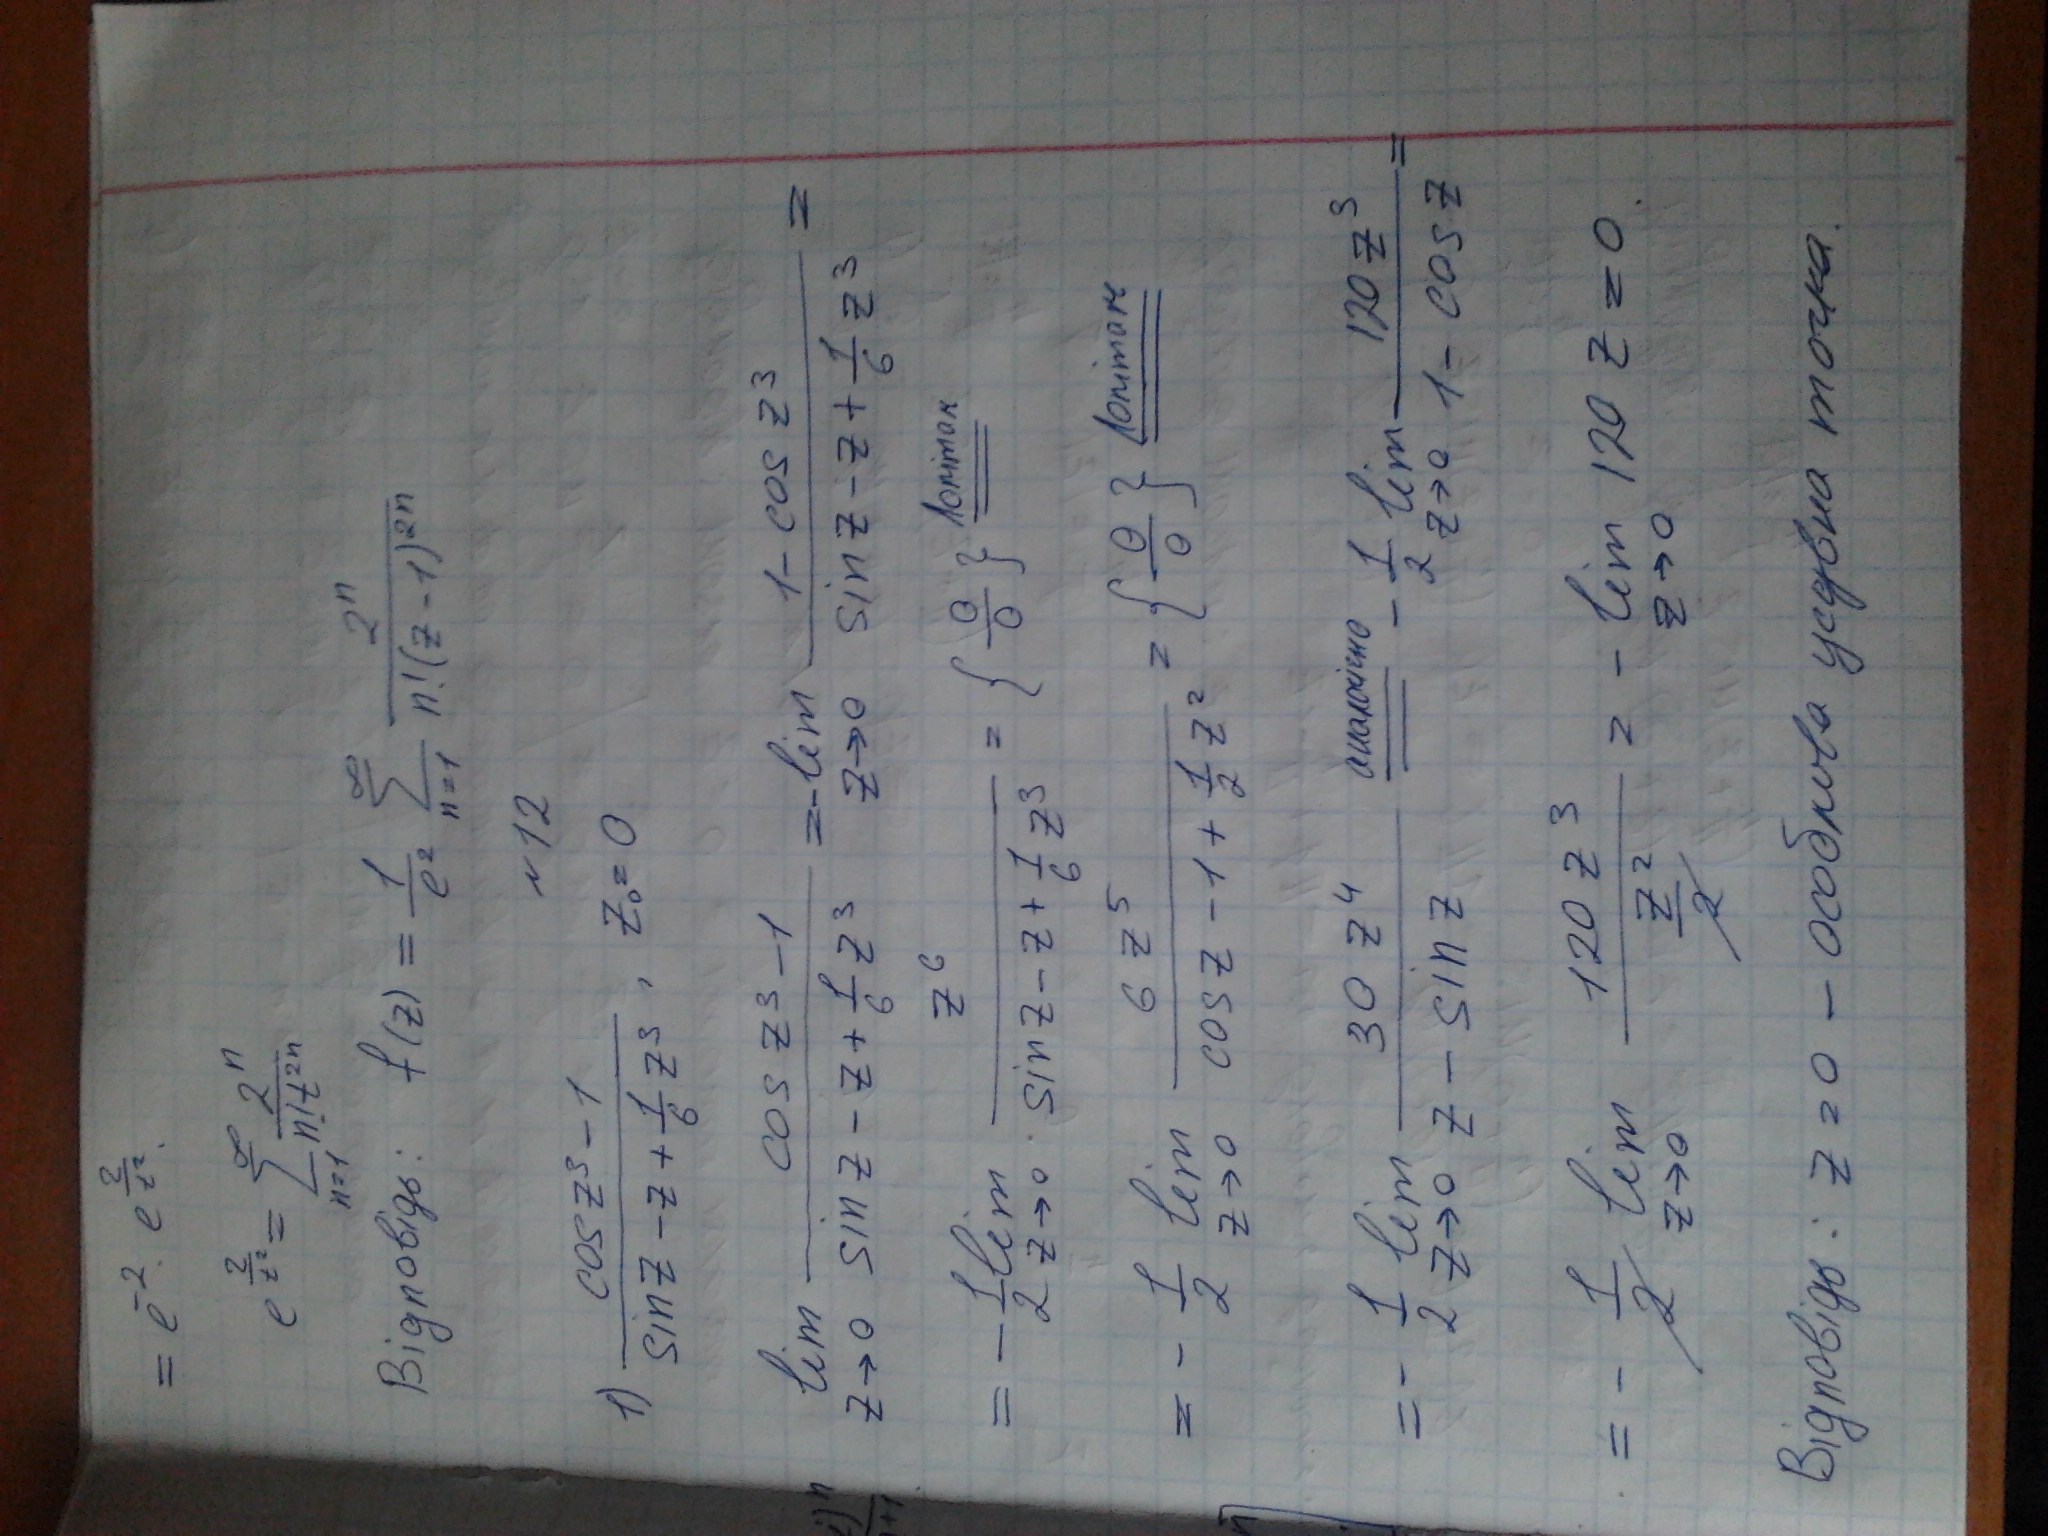 = e^{-2} · e^{\frac{2}{t^2}}.
e^{\frac{2}{t^2}} = \sum_{n=1}^{∞} \frac{2^n}{n! t^{2n}}
Відповідь: f(z) = \frac{1}{e^2} \sum_{n=1}^{∞} \frac{2^n}{n!(z-1)^{2n}}
№12
1) \frac{cos z^3 - 1}{sin z - z + \frac{1}{6} z^3}, z_0 = 0
\lim_{z→0} \frac{cos z^3 - 1}{sin z - z + \frac{1}{6} z^3} = -\lim_{z→0} \frac{1 - cos z^3}{sin z - z + \frac{1}{6} z^3} =
= -\frac{1}{2} \lim_{z→0} \frac{z^6}{sin z - z + \frac{1}{6} z^3} = \{\frac{0}{0}\} Лопіталь
= -\frac{1}{2} \lim_{z→0} \frac{6 z^5}{cos z - 1 + \frac{1}{2} z^2} = \{\frac{0}{0}\} Лопіталь
= -\frac{1}{2} \lim_{z→0} \frac{30 z^4}{z - sin z} аналогічно = -\frac{1}{2} \lim_{z→0} \frac{120 z^3}{1 - cos z} =
= -\frac{1}{2} \lim_{z→0} \frac{120 z^3}{\frac{z^2}{2}} = -\lim_{z→0} 120 z = 0.
Відповідь: z = 0 – особлива усувна точка.